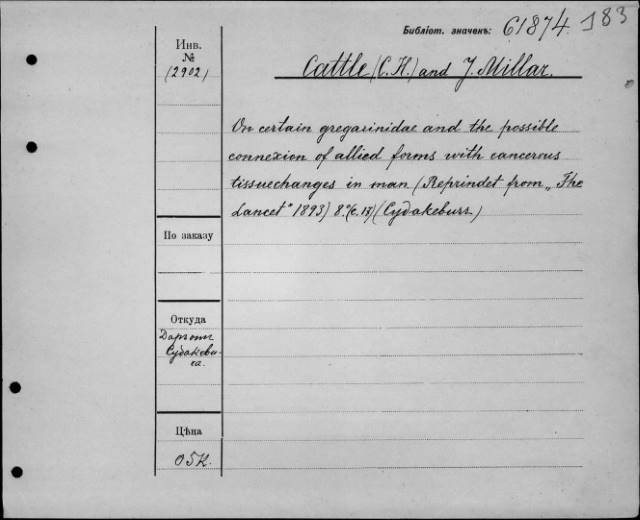 Библіот. значекъ: 61874 183
Инв.
№
(2902)
Cattle (C. H.) and J. Millar.
On certain gregarinidae and the possible
connexion of allied forms with cancerous
tissuechanges in man (Reprindet from „The
Lancet“ 1893) 8° (с. 18) (Судакевичъ)
По заказу
Откуда
Судакеви-
ча.
Цѣна
05к.